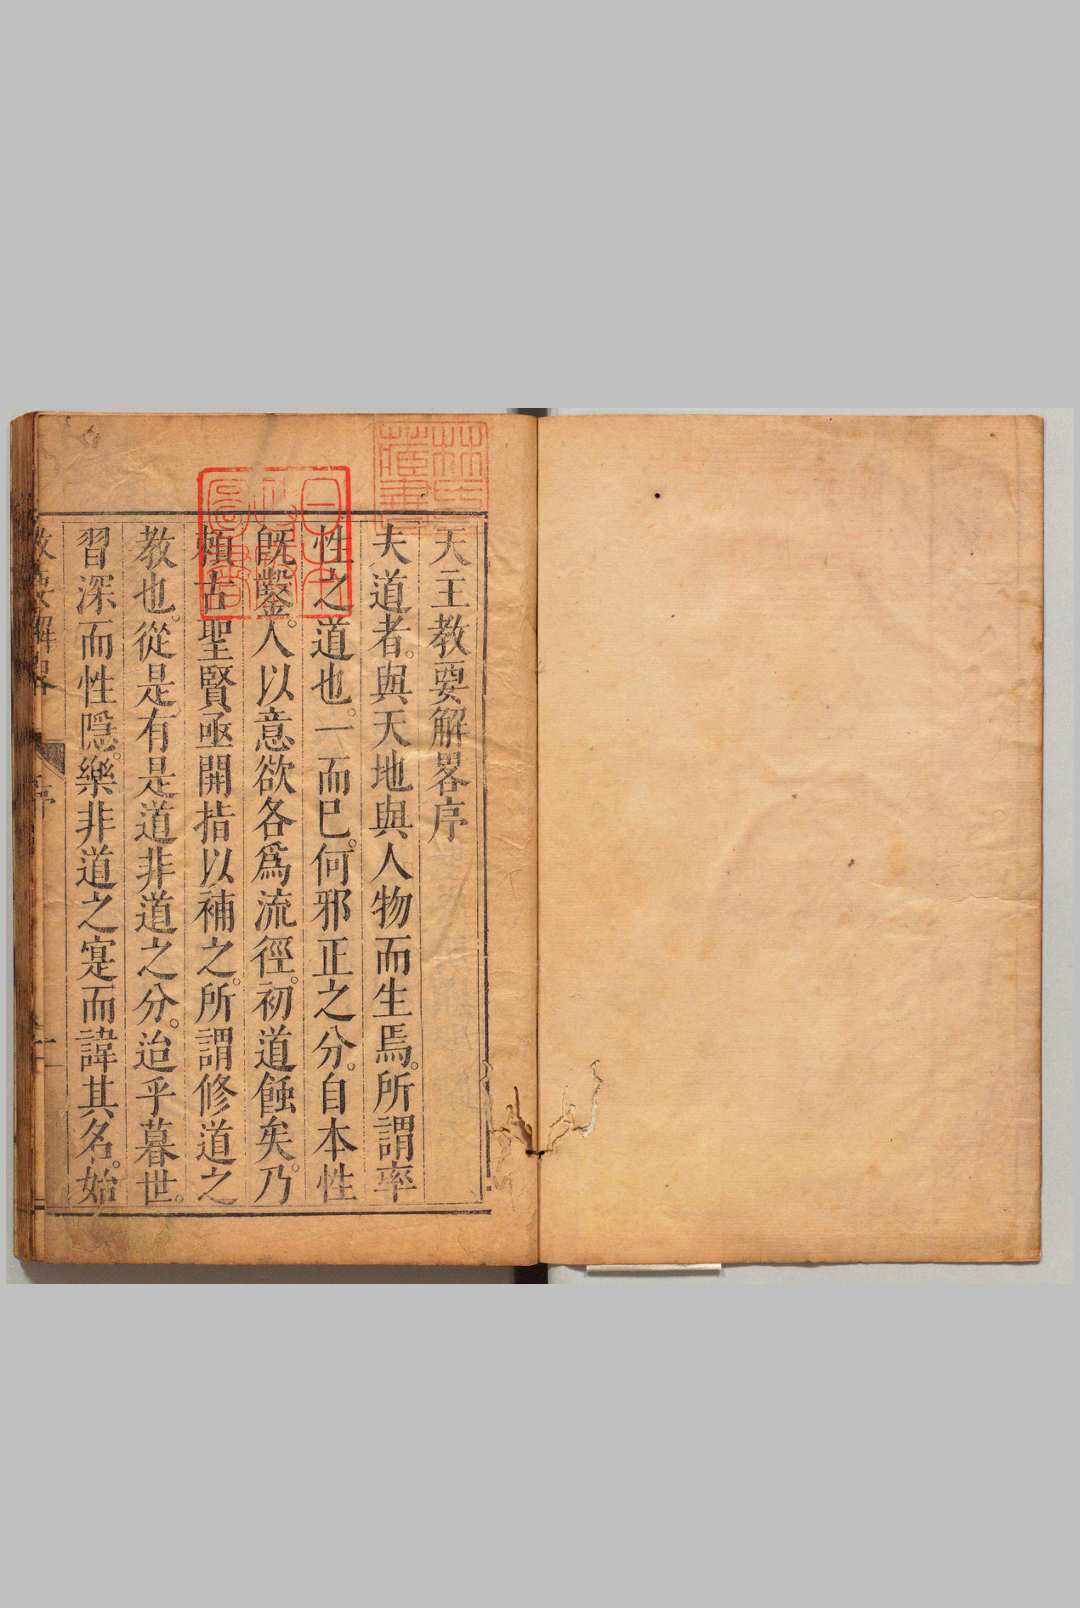 天主教要解畧序
夫道者。與天地與人物而生焉。所謂率
性之道也。一而已。何邪正之分。自本性
旣鑿。人以意欲各爲流徑。初道蝕矣。乃
賴古聖賢亟開指以補之。所謂修道之
教也。從是有是道非道之分。迨乎暮世。
習深而性隱。樂非道之寔而諱其名。始
教要解畧
序
一
林氏藏書
日本政府圖書